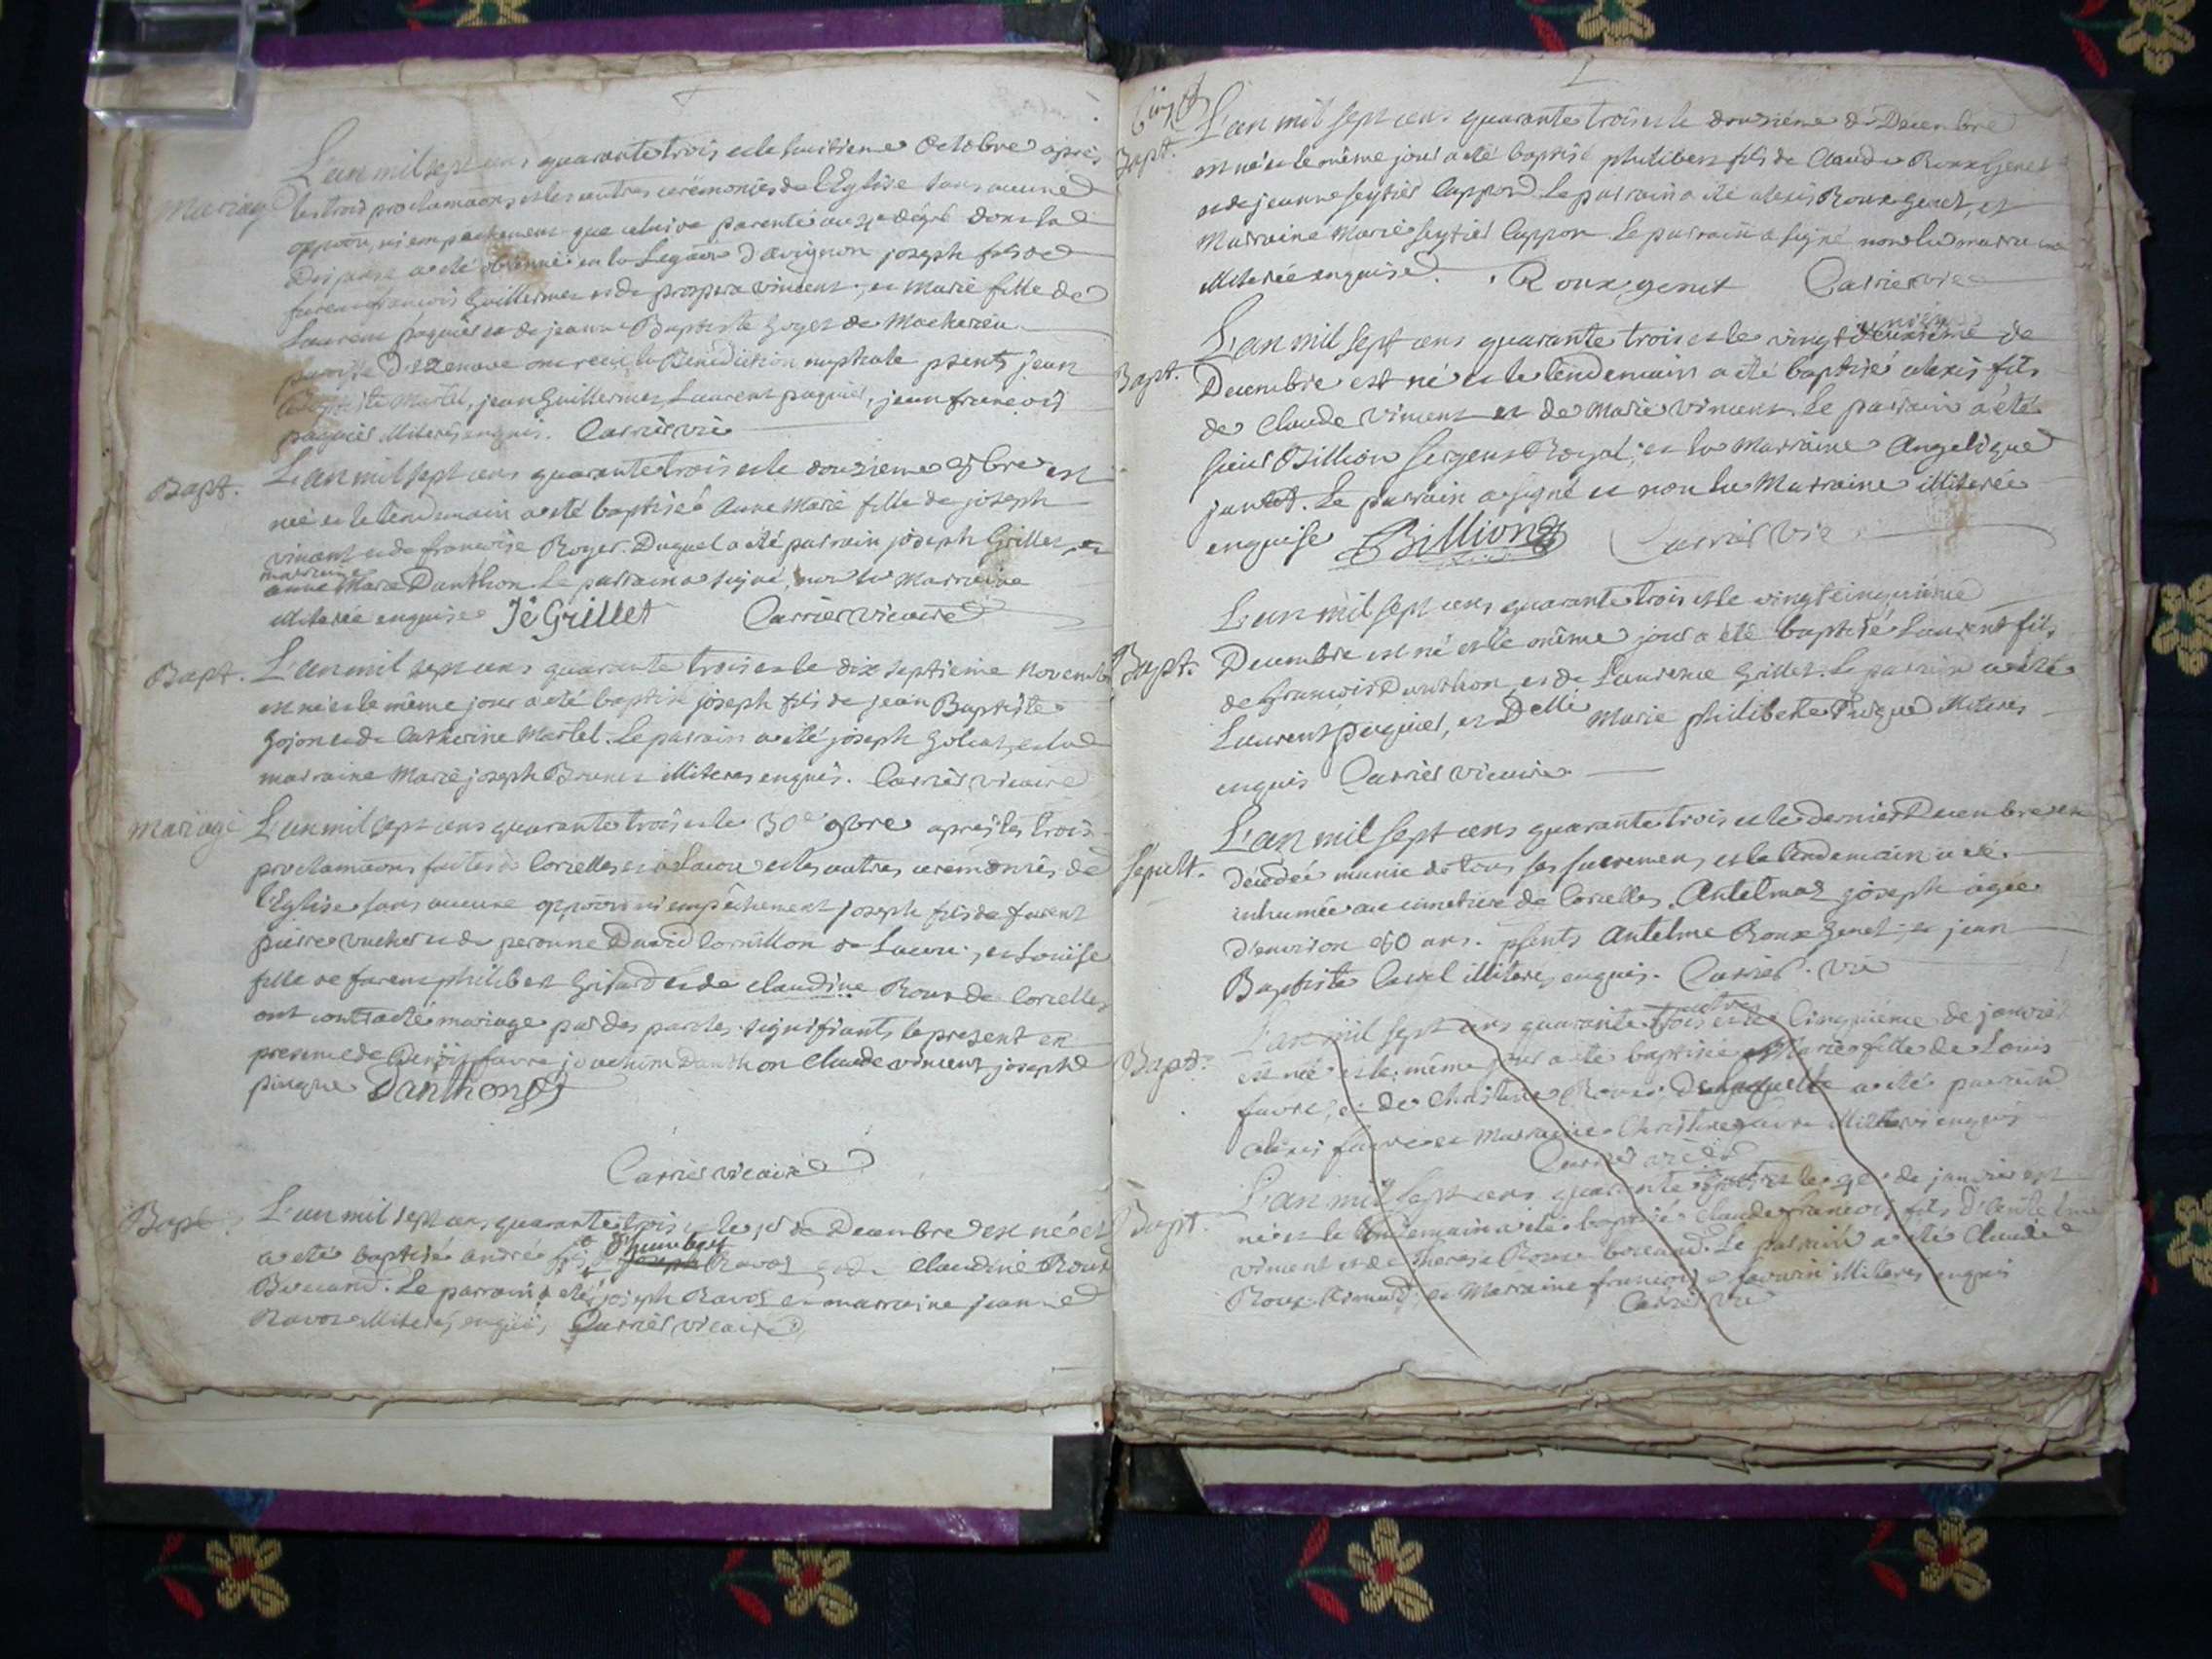 L'an mil sept cens quarante trois et le huitieme Octobre apres
Mariage les trois proclamaons et les autres cérémonies de l'Eglise sans aucune
oppoon, ni empechement que celui de parenté au 4e dégré dont la
Dispense a été obtenue en la Legaon d'avignon joseph fils de
furent francois Guillermet et de prospera vincent, et Marie fille de
Laurent paquier et de jeanne Baptiste Goyet de Machurieu
ont recu la Bénédiction nuptiale psents jean
Baptiste Martel, jean Guillermet, Laurent paquier, jean francois
paquier illiterés enquis. Carrier vic
Bapt. L'an mil sept cens quarante trois et le douzieme 9bre est
née et le lendemain a été baptisée Anne Marie fille de joseph
vincent et de francoise Roger. Duquel a été parrain joseph Grillet, et
marraine
anne Marie Danthon. Le parrain a signé, non la Marraine
illiterée enquise Jè Grillet Carrier vicaire
Bapt. L'an mil sept cens quarante trois et le dix septieme Novembre
est né et le même jour a été baptisé joseph fils de jean Baptiste
Gojon et de Catherine Martel. Le parrain a été joseph et la
marraine Marie joseph Brunet illiteres enquis. Carrier vicaire
Mariage L'an mil sept cens quarante trois et le 30e 9bre apres les trois
proclamaons faites à Corcelles et à Lacou et les autres ceremonies de
l'Eglise sans aucune oppoon ni empêchement joseph fils de furent
pierre vucher et de peronne David Cornillon de Lacou, et Louise
fille de furent philibert Grisard et de claudine Roux de Corcelles
ont contracté mariage par des paroles signifiants le present en
presence de Benoit favre joachim Danthon Claude vincent joseph
pingue Danthon
Carrier vicaire
Bapt. L'an mil sept cens quarante trois et le de Decembre est né et
a été baptisé andré fils d'humbert
joseph Ravot et de claudine Roux
Bocand. Le parrain a eté joseph Ravot et marraine jeanne
Ravot illiterés enquis, Carrier vicaire
Bapt. L'an mil sept cens quarante trois et le douzième de Decembre
est né et le même jour a été baptisé philibert fils de Claude Roux Genet
et de jeanne seytier Cappon. Le parrain a été alexis Roux genet, et
Marraine Marie seytier Cappon. Le parrain a signé non la marraine
illiterée enquise. Roux genet Carrier vic
unième
L'an mil sept cens quarante trois et le vingt deuxieme de
Bapt. Decembre est né et le lendemain a été baptisé alexis fils
de Claude vincent et de Marie vincent. Le parrain a été
sieur Billion sergent Royal, et la Marraine Angelique
jantet. Le parrain a signé et non la Marraine illiterée
enquise Billion Carrier vic
L'an mil sept cens quarante trois et le vingt cinquième
Bapt. Decembre est né et le même jour a été baptisé Laurent fils
de francois Danthon et de Laurence Grillet. Le parrain a été
Laurent paquier, et Delle Marie philiberte illiteres
enquis Carrier vicaire
L'an mil sept cens quarante trois et le dernier Decembre est
Sepult. décédée munie de tous ses sacremens, et le lendemain a été
inhumée au cimetiere de Corcelles, Antelmaz joseph agée
d'environ 60 ans. psents Antelme Roux Genet, et jean
Baptiste Carrel illiteres enquis. Carrier. vic
quatre
L'an mil sept cens quarante trois et le Cinquième de janvier
Bapt. est née et le même jour a été baptisée Marie fille de Louis
favre, et de Christine Roux. De laquelle a été parrain
alexis favre et Marraine Christine favre illiteres enquis
Carrier vic
L'an mil sept cens quarante quatre et le 9e de janvier est
Bapt. né et le lendemain a été baptisé Claude francois fils d'antelme
vincent et de Therese Roux bocand. Le parrain a été Claude
Roux et Marraine francoise illiteres enquis
Carrier vic